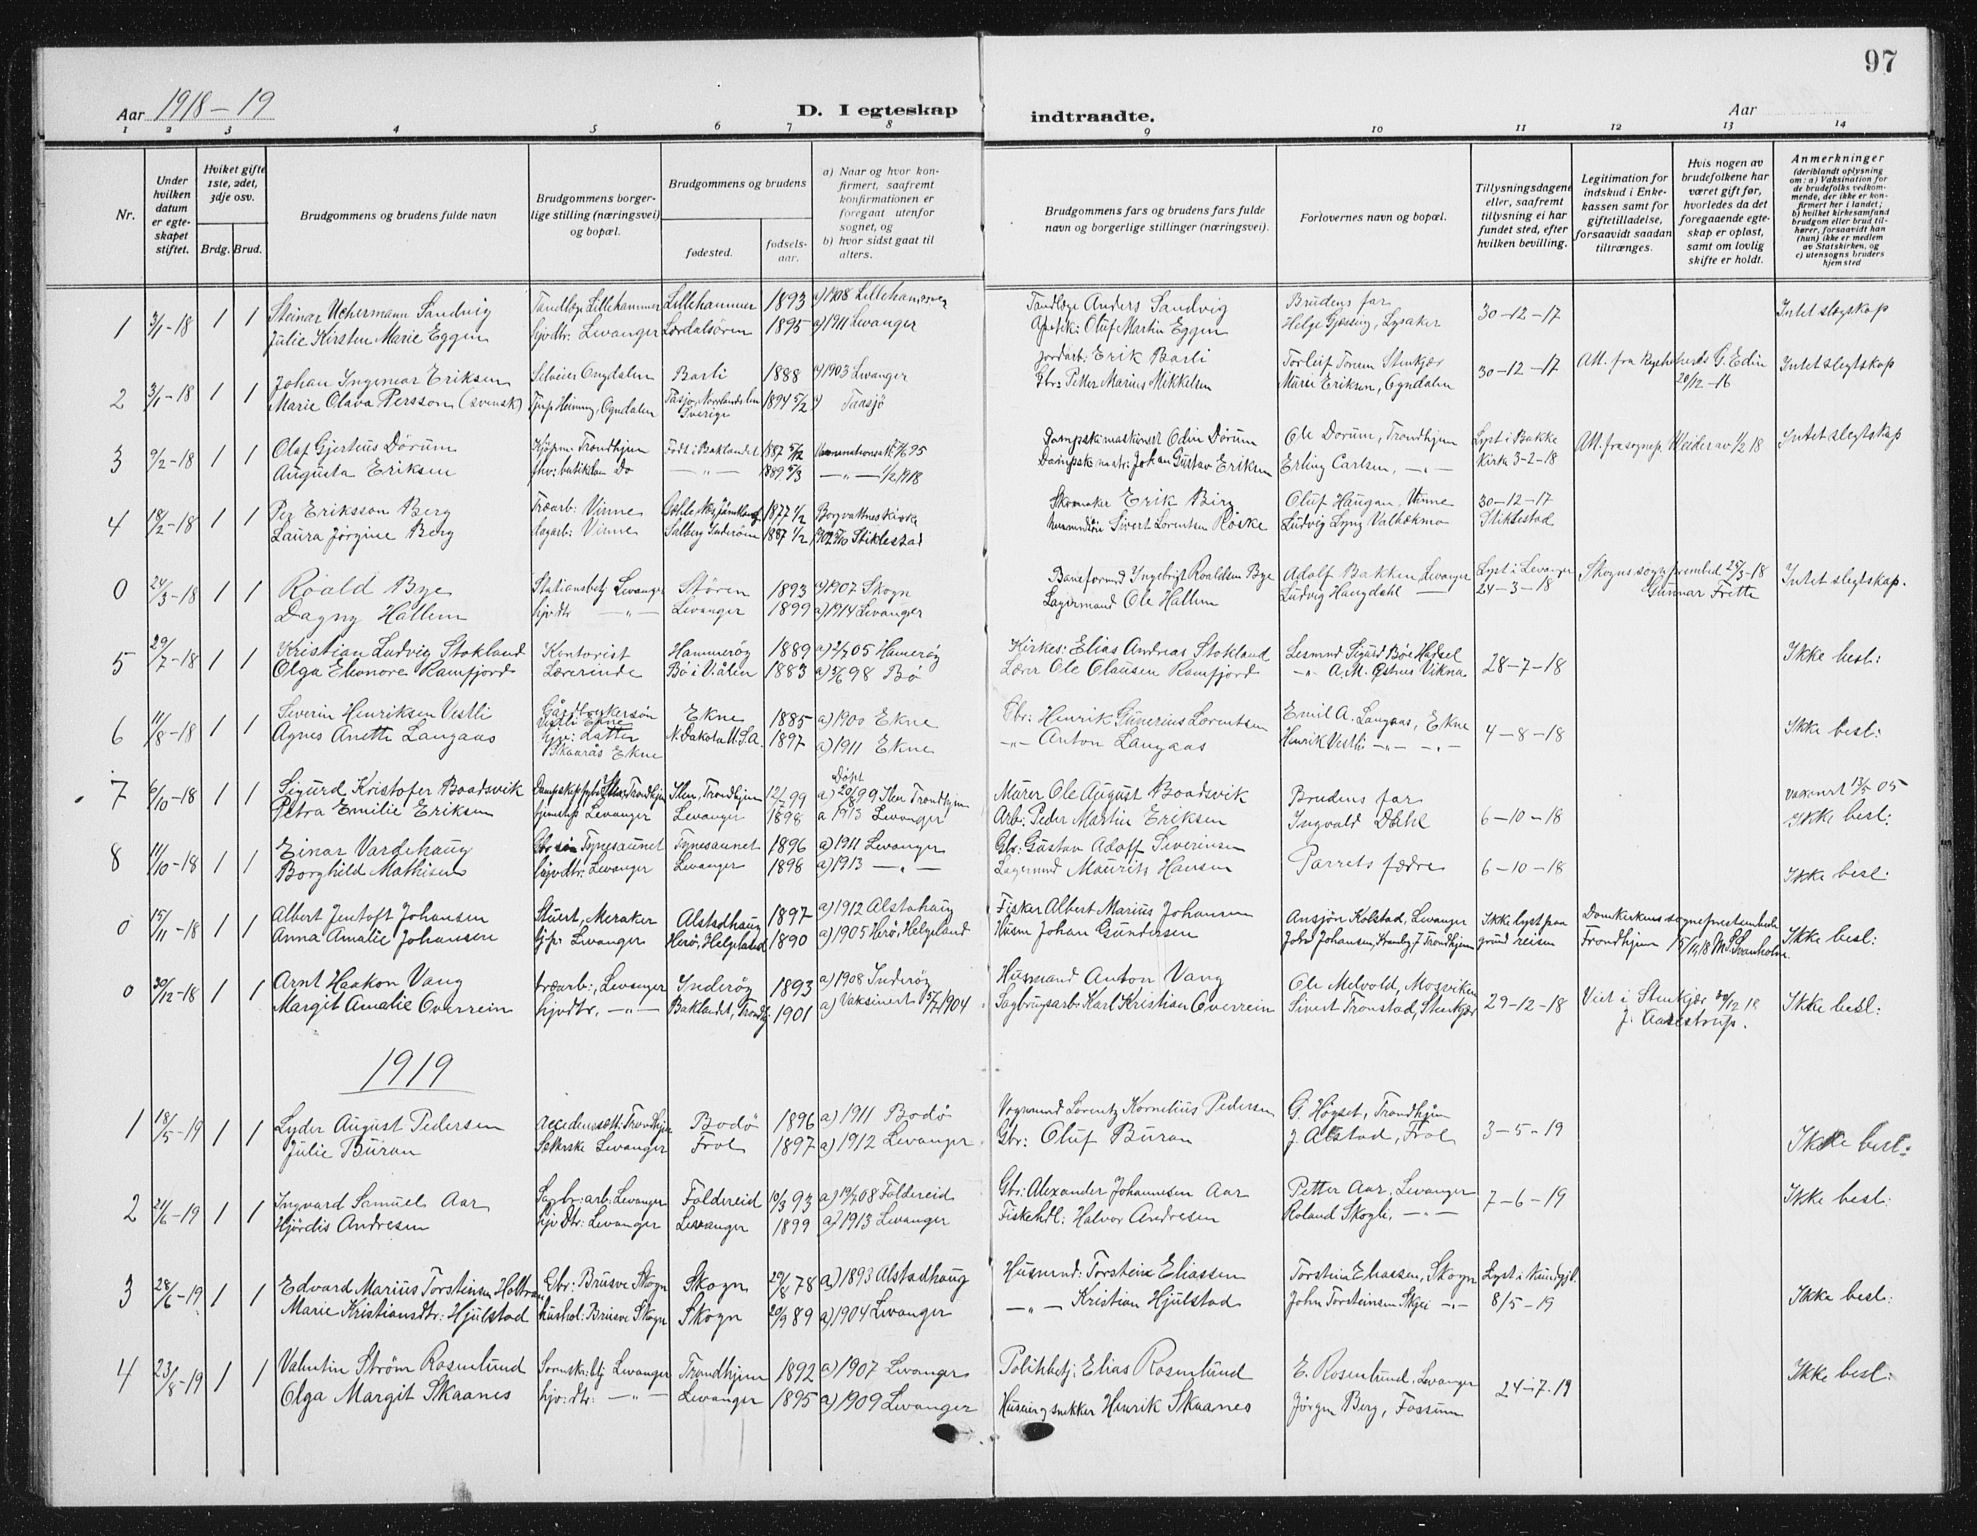 97
Aar 1918-19
D. I egteskap
indtraadte.
Aar
1 2 3 4 5 6 7 8 9 10 11 12 13 14
Nr.
Under hvilken datum er egteskapet stiftet.
Hviket gifte 1ste, 2det, 3dje osv.
Brdg. Brud.
Brudgommens og brudens fulde navn
Brudgommens borgerlige stilling (næringsvei) og bopæl.
Brudgommens og brudens
fødested.
fødsels-aar.
a) Naar og hvor konfirmert, saafremt konfirmationen er foregaat utenfor sognet, og
b) hvor sidst gaat til alters.
Brudgommens fars og brudens fars fulde navn og borgerlige stillinger (næringsvei).
Forlovernes navn og bopæl.
Tillysningsdagene eller, saafremt tillysning ei har fundet sted, efter hvilken bevilling.
Legitimation for indskud i Enkekassen samt for giftetilladelse, forsaavidt saadan tiltrænges.
Hvis nogen av brudefolkene har været gift før, hvorledes da det foregaaende egteskap er opløst, samt om lovlig skifte er holdt.
Anmerkninger (deriblandt oplysning om: a) Vaksination for de brudefolks vedkommende, der ikke er konfirmert her i landet; b) hvilket kirkesamfund brudgom eller brud tilhører, forsaavidt han (hun) ikke er medlem av Statskirken, og c) utensogns bruders hjemsted
1 3/1-18 1 1 Steinar Uchermann Sandvig Tandlæge Lillehammer Lillehammer 1893 a) 1908 Lillehammer Tandlæge Anders Sandvig Brudens far 30-12-17 Intet slegtskap
Julie Kirsten Marie Eggen hjv.dtr: Levanger Lærdalsören 1895 a) 1911 Levanger Apotek: Oluf Martin Eggen Helge Gjessing, Lysaker
2 3/1-18 1 1 Johan Ingemar Eriksen Ongdalen Barli 1888 a) 1903 Levanger Jordarb: Erik Barli Torleif Torum Stenkjær 30-12-17 Att. fra G. Edin Intet slegtskap
Marie Olava Persson (svensk) Ogndalen Tåsjø, Norrlands län Sverige 1894 5/2 a) Taasjö Gbr: Petter Marius Mikkelsen Marie Eriksen, Ogndalen 29/12-16
3 9/2-18 1 1 Olaf Gjertius Dörum Kjøpm: Trondhjem Født i Baklandet 1887 Odin Dörum Ole Dorum, Trondhjem Lyst i Bakke Att. fra sognep. Weider av 1/2 18 Intet slegtskap
Augusta Eriksen Do -"- 1889 5/3 -"- 1/2 1918 Johan Gustav Eriksen Erling Carlsen, -"- Kirke 3-2-18
4 18/2-18 1 1 Per Eriksson Berg Træarb: Vinne 1877 1/2 Borgvattnes kirke Skomaker Erik Berg Oluf Haugan, Vinne 30-12-17
Laura Jørgine Berg dagarb: Vinne Salberg Inderöen 1887 1/2 1902 Stiklestad Sivert Lorentsen Röske Ludvig Lyng Valbækmo Stiklestad
0 24/3-18 1 1 Roald Bye Stationsbetj Levanger Stören 1893 a) 1907 Skogn Baneformd Ingebrigt Roaldsen Bye Adolf Bakken Levanger Lyst i Levanger Skogns sogneprembed 25/3-18 Intet slegtskap.
Dagny Hallem hjv.dtr -"- Levanger 1899 a) 1914 Levanger Lagermand Ole Hallem Ludvig Haugdahl -"- 24-3-18 Gunnar Frette
5 29/7-18 1 1 Kristian Ludvig Stokland Kontorist Hammeröy 1889 05 Hameröy Kirkes: Elias Andreas Stokland Lesmnd Sigurd Bøe Hadsel 28-7-18 Ikke besl:
Olga Eleonore Ramfjord Lærerinde Bö i V.ålen 1883 98 Bö Lærer Ole Olausen Ramfjord -"- A.M. Østnes Vikna
6 11/8-18 1 1 Severin Henriksen Vestli Gårdbrukersön Vestli Ekne Ekne 1885 a) 1900 Ekne Gbr: Henrik Gunerius Lorentsen Emil A. Langaas, Ekne 4-8-18 Ikke besl:
Agnes Anette Langaas hjv: datter Skaarås Ekne N. Dakota U.S.A. 1897 a) 1911 Ekne -"- Anton Langaas Henrik Vestli -"- -"-
7 6/10-18 1 1 Sigurd Kristofer Boadsvik Trondhjem Ilen, Trondhjem 12/7 99 Døpt a) 20/8 99 Ilen Trondhjem Murer Ole August Boadsvik Brudens far 6-10-18 vaksinert 13/5 05
Petra Emilie Eriksen Levanger Levanger 1898 a 1913 Levanger Arb: Peder Martin Eriksen Ingvald Dæhl Ikke besl:
8 11/10-18 1 1 Einar Vardehaug Gbr sön Tynesaunet Tynesaunet 1896 a) 1911 Levanger Gbr: Gustav Adolf Severinsen Parrets fædre 6-10-18 Ikke besl:
Borghild Mathisen hjvdtr: Levanger Levanger 1898 a) 1913 -"- Lagermnd Maurits Hansen
0 15/11-18 1 1 Albert Jentoft Johansen Stuert, Meraker Alstadhaug 1897 a) 1912 Alstahaug Fisker Albert Marius Johansen Ansjön Kolstad, Levanger Ikke lyst paa Domkirkens sogneprestembede
Anna Amalie Johansen Levanger Herö, Helgeland 1890 a) 1905 Herö, Helgeland Husm Johan Gundersen John Johansen, Trondhjem grund reisen Trondhjem 15/11 18 M. Svanholm. Ikke besl:
0 30/12-18 1 1 Arnt Haakon Vang træarb:, Levanger Inderöy 1893 a) 1908 Inderöy Husmand Anton Vang Ole Melvold, Mosviken 29-12-18 Viet i Stenkjær 30/12 18 Ikke besl:
Margit Amalie Overrein hjvdtr. -"- Baklandet, Trondhj 1901 a) Vaksinert 5/7 1904 Sagbrugsarb: Karl Kristian Overrein Sivert Tronstad, Stenkjær J. Aarestrup.
1919
1 18/5-19 1 1 Lyder August Pedersen Trondhjem Bodö 1896 a) 1911 Bodö Vognmnd Lorentz Kornelius Pedersen G. Högset, Trondhjem 3-5-19 Ikke besl:
Julie Buran Levanger Frol 1897 a) 1912 Levanger Gbr: Oluf Buran J. Alstad, Frol
2 21/6-19 1 1 Ingvard Samuels Aar Sagbr: arb. Levanger Foldereid 10/3 93 a) 08 Foldereid Gbr: Alexander Johannesen Aar Petter Aar, Levanger 7-6-19 Ikke besl:
Hjördis Andresen hjv Dtr: Levanger Levanger 1899 a) 1913 Levanger Fiskehdl: Halvor Andresen Roland Skogli, -"-
3 28/6-19 1 1 Edvard Marius Torstensen Holtran Gbr: Brusve Skogn Skogn 29/8 78 a) 1893 Alstadhaug Husmnd: Torstein Eliassen Torstein Eliassen, Skogn 8/5-19 Ikke besl:
Marie Kristiansdtr: Hjulstad hushol: Brusve Skogn Skogn 20/9 89 a) 1904 Levanger -"- Kristian Hjulstad John Torsteinsen Skjei -"-
4 23/8-19 1 1 Valentin Ström Rosenlund Levanger Trondhjem 1892 a) 1907 Levanger Politibetj: Elias Rosenlund E. Rosenlund, Levanger 24-7-19 Ikke besl:
Olga Margit Skaanes hjv: dtr: -"- Levanger 1895 a) 1909 Levanger Husein og snekker Henrik Skaanes Jörgen Berg, Fossum